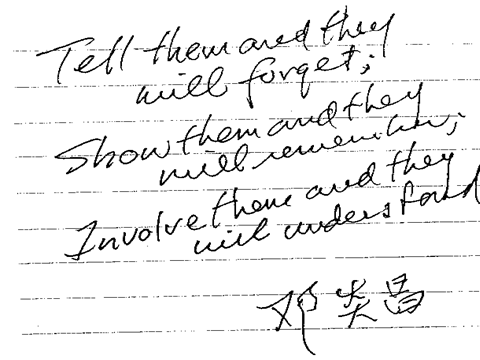 Tell them and they
will forget;
Show them and they
will remember;
Involve them and they
will understand
邓炎昌